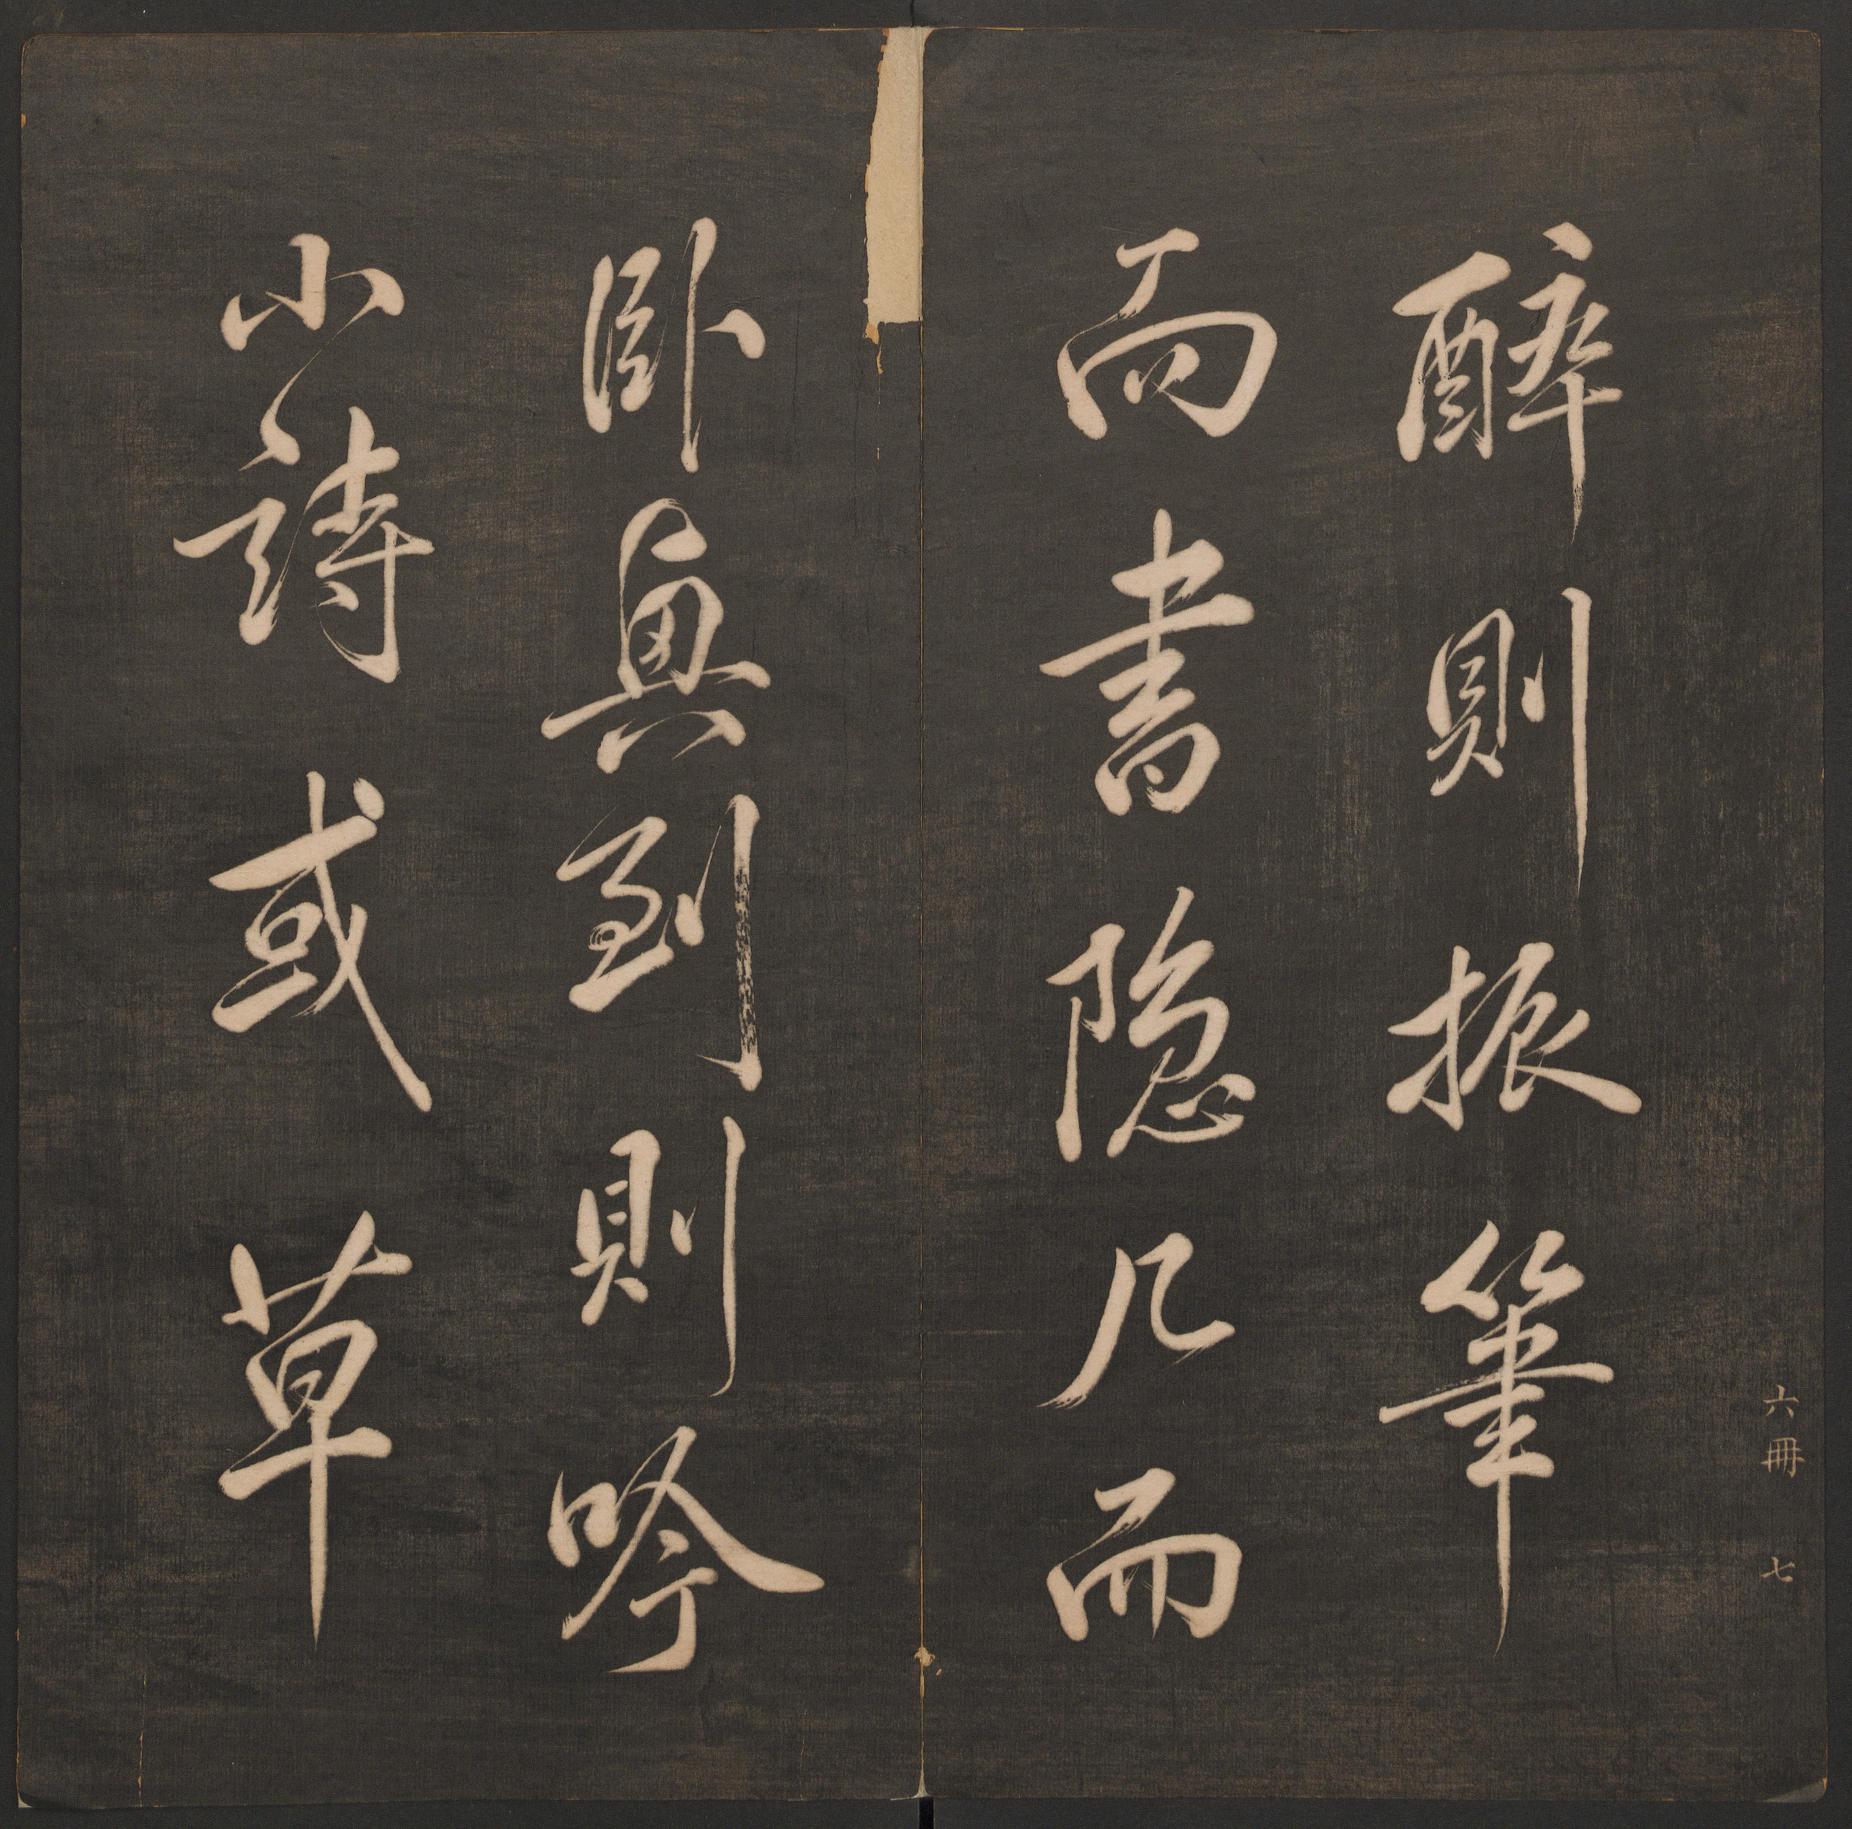 六冊 七
醉則振筆
而書隐几而
卧興到則吟
小詩或草